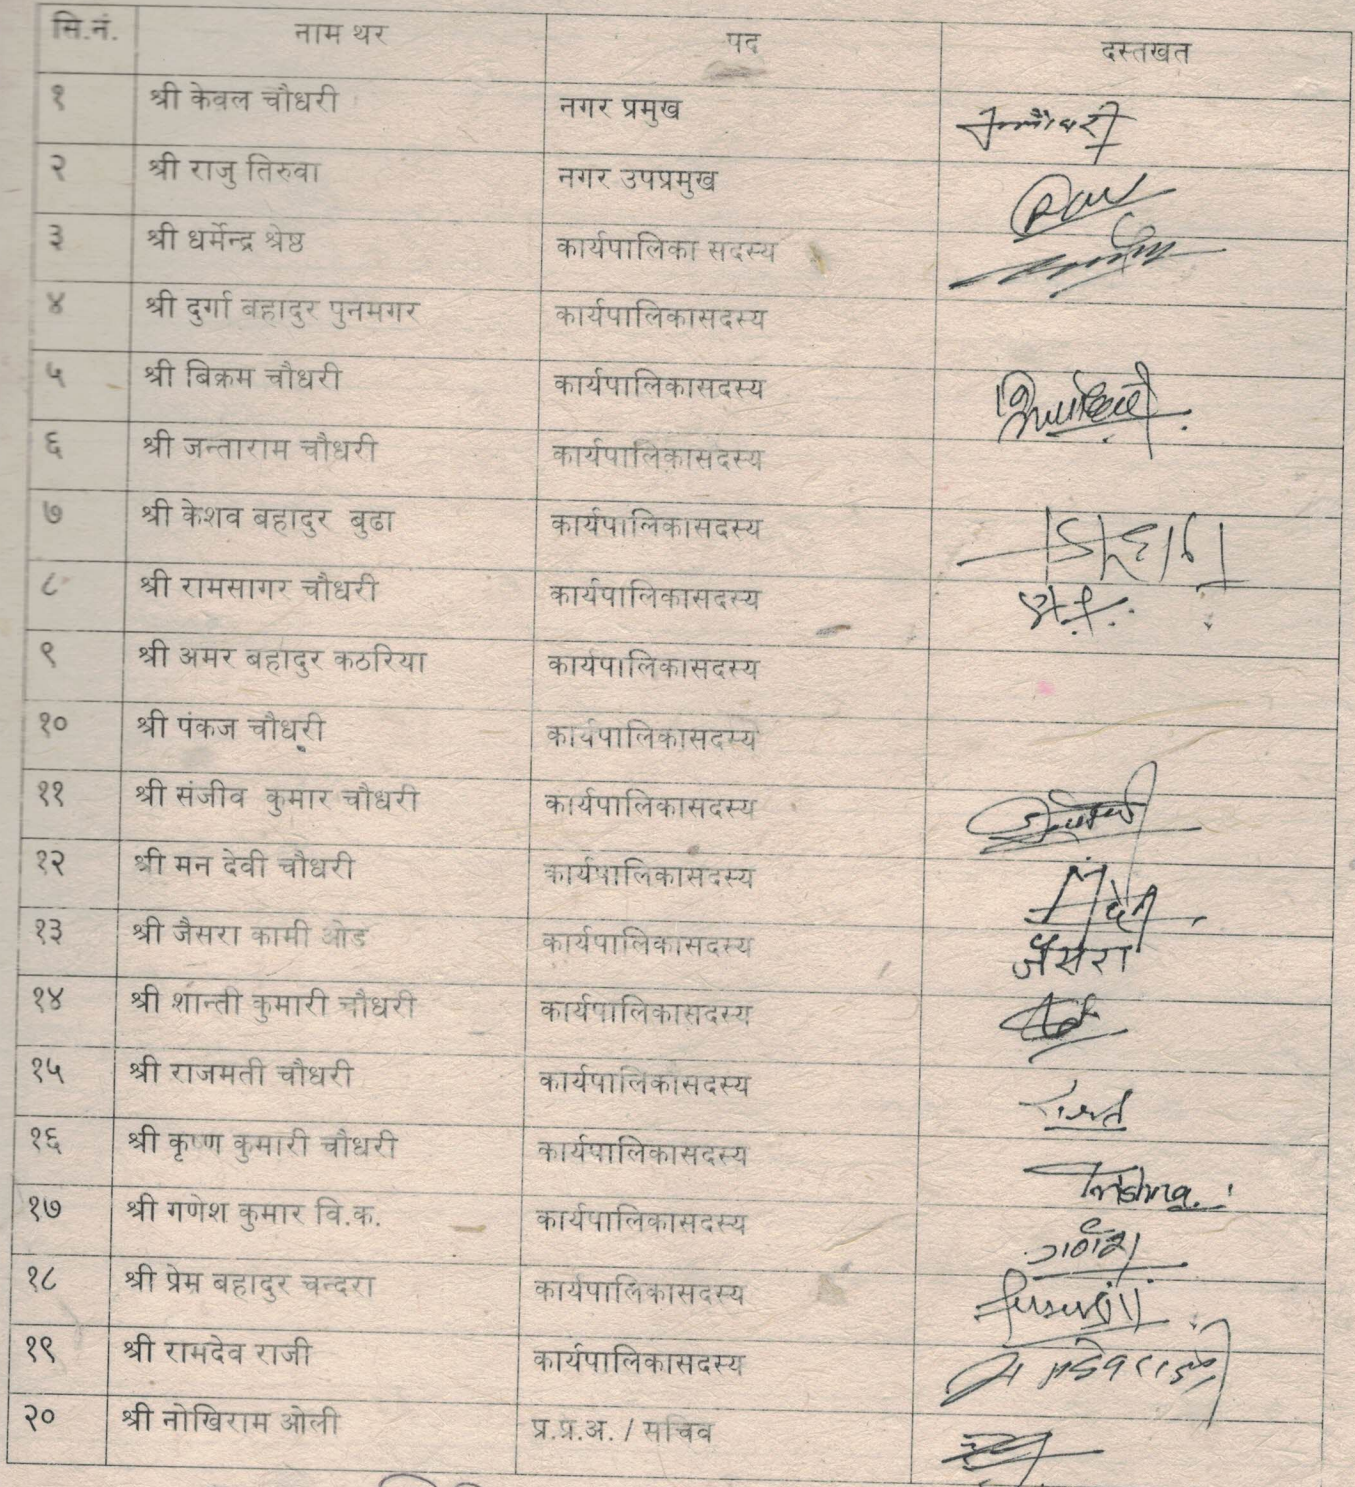 सि.नं. नाम थर पद दस्तखत
१ श्री केवल चौधरी नगर प्रमुख
२ श्री राजु तिरुवा नगर उपप्रमुख
३ श्री धर्मेन्द्र श्रेष्ठ कार्यपालिका सदस्य
४ श्री दुर्गा बहादुर पुनमगर कार्यपालिकासदस्य
५ श्री बिक्रम चौधरी कार्यपालिकासदस्य
६ श्री जन्ताराम चौधरी कार्यपालिकासदस्य
७ श्री केशव बहादुर बुढा कार्यपालिकासदस्य
८ श्री रामसागर चौधरी कार्यपालिकासदस्य
९ श्री अमर बहादुर कठरिया कार्यपालिकासदस्य
१० श्री पंकज चौधरी कार्यपालिकासदस्य
११ श्री संजीव कुमार चौधरी कार्यपालिकासदस्य
१२ श्री मन देवी चौधरी कार्यपालिकासदस्य
१३ श्री जैसरा कामी ओड कार्यपालिकासदस्य जैसरा
१४ श्री शान्ती कुमारी चौधरी कार्यपालिकासदस्य
१५ श्री राजमती चौधरी कार्यपालिकासदस्य
१६ श्री कृष्ण कुमारी चौधरी कार्यपालिकासदस्य Krishna
१७ श्री गणेश कुमार वि.क. कार्यपालिकासदस्य गणेश
१८ श्री प्रेम बहादुर चन्दरा कार्यपालिकासदस्य
१९ श्री रामदेव राजी कार्यपालिकासदस्य
२० श्री नोखिराम ओली प्र.प्र.अ. / सचिव